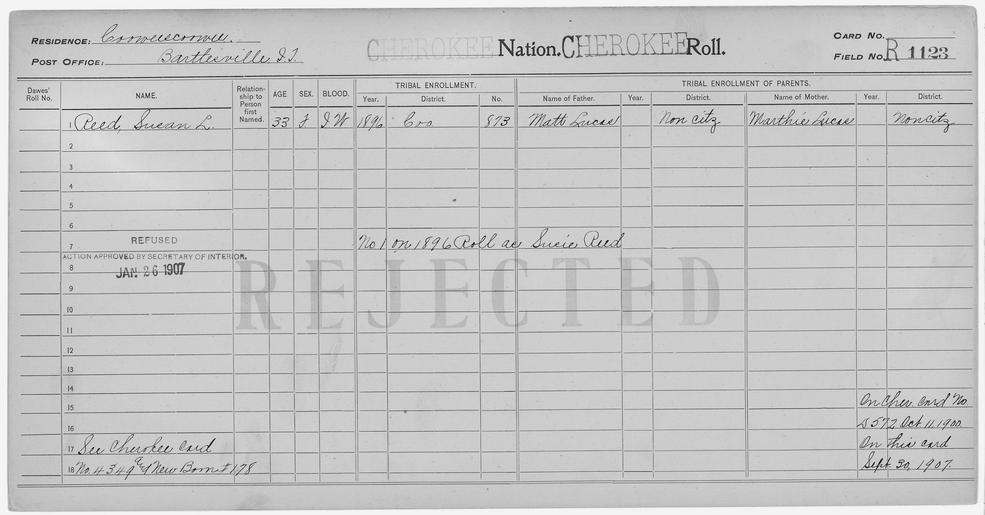 RESIDENCE: Coowescoowee.
POST OFFICE: Bartlesville, I.T.
CHEROKEE Nation. CHEROKEE Roll.
CARD NO.
FIELD NO. R 1123
Dawes' Roll No.
NAME.
Relationship to Person first Named.
AGE.
SEX.
BLOOD.
TRIBAL ENROLLMENT.
Year. District. No.
TRIBAL ENROLLMENT OF PARENTS.
Name of Father. Year. District. Name of Mother. Year. District.
1 Reed, Susan L. 33 F I W 1896 Coo 873 Matt Lucas Non citz Marthie Lucas Noncitz
2
3
4
5
6
7 REFUSED No 1 on 1896 Roll as Susie Reed
ACTION APPROVED BY SECRETARY OF INTERIOR.
8 JAN 26 1907
REJECTED
9
10
11
12
13
14
15 On Cher. Card No.
16 D 572 Oct 11, 1900
17 See Cherokee Card On this card
18 No. 4349 and New Born # 178 Sept 30, 1907.